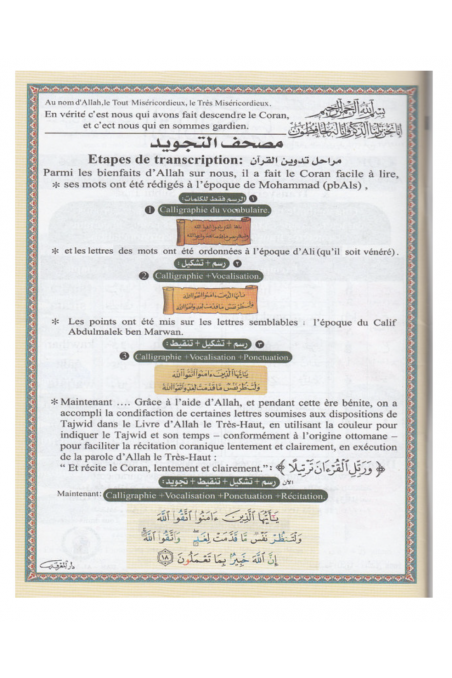 Au nom d'Allah,le Tout Miséricordieux, le Très Miséricordieux.
En vérité c'est nous qui avons fait descendre le Coran,
et c'ect nous qui en sommes gardien.
بسم الله الرحمن الرحيم
إنا نحن نزلنا الذكر وإنا له لحافظون
مصحف التجويد
Etapes de transcription: مراحل تدوين القرآن
Parmi les bienfaits d'Allah sur nous, il a fait le Coran facile à lire,
* ses mots ont été rédigés à l'époque de Mohammad (pbAls) ,
١ الرسم فقط للكلمات:
1 Calligraphie du vocabulaire.
* et les lettres des mots ont été ordonnées à l'époque d'Ali (qu'il soit vénéré).
٢ رسم + تشكيل :
2 Calligraphie +Vocalisation.
* Les points ont été mis sur les lettres semblables : l'époque du Calif
Abdulmalek ben Marwan.
٣ رسم + تشكيل + تنقيط :
3 Calligraphie +Vocalisation +Ponctuation
يَٰٓأَيُّهَا ٱلَّذِينَ ءَامَنُوا ٱتَّقُوا ٱللَّهَ
وَلْتَنظُرْ نَفْسٌ مَّا قَدَّمَتْ لِغَدٍ وَٱتَّقُوا ٱللَّهَ
* Maintenant .... Grâce à l'aide d'Allah, et pendant cette ère bénite, on a
accompli la condifaction de certaines lettres soumises aux dispositions de
Tajwid dans le Livre d'Allah le Très-Haut, en utilisant la couleur pour
indiquer le Tajwid et son temps – conformément à l'origine ottomane –
pour faciliter la récitation coranique lentement et clairement, en exécution
de la parole d'Allah le Très-Haut :
" Et récite le Coran, lentement et clairement.": ﴿ وَرَتِّلِ ٱلْقُرْءَانَ تَرْتِيلًا ﴾
الآن رسم + تشكيل + تنقيط + تجويد:
Maintenant: Calligraphie +Vocalisation +Ponctuation +Récitation.
يَٰٓأَيُّهَا ٱلَّذِينَ ءَامَنُوا ٱتَّقُوا ٱللَّهَ
وَلْتَنظُرْ نَفْسٌ مَّا قَدَّمَتْ لِغَدٍ وَٱتَّقُوا ٱللَّهَ
إِنَّ ٱللَّهَ خَبِيرٌۢ بِمَا تَعْمَلُونَ ١٨